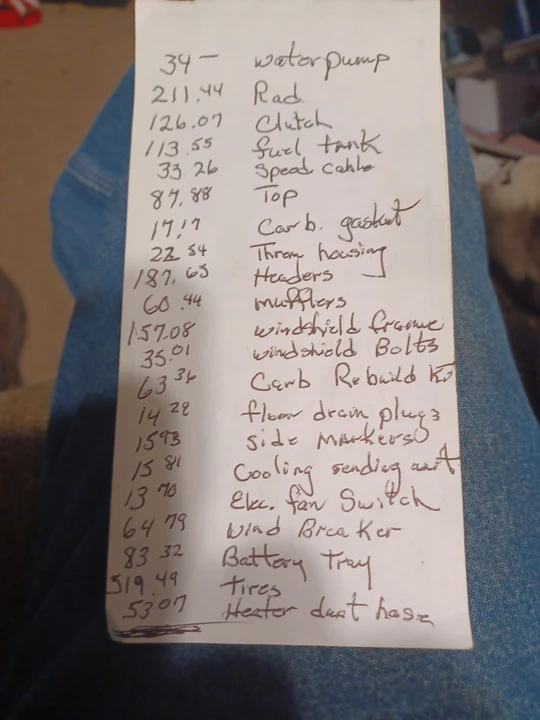 34 — water pump
211.44 Rad.
126.07 Clutch
113.55 fuel tank
33.26 speed cable
87.88 Top
17.17 Carb. gasket
22 54 Therm housing
187.65 Headers
60.44 mufflers
157.08 windshield frame
35.01 windshield Bolts
63 36 Carb Rebuild Kit
14 28 floor drain plugs
15 93 side markers
15 81 Cooling sending unit
13 70 Elec. fan Switch
64 79 Wind Breaker
83 32 Battery Tray
519.49 Tires
53 07 Heater duct hose